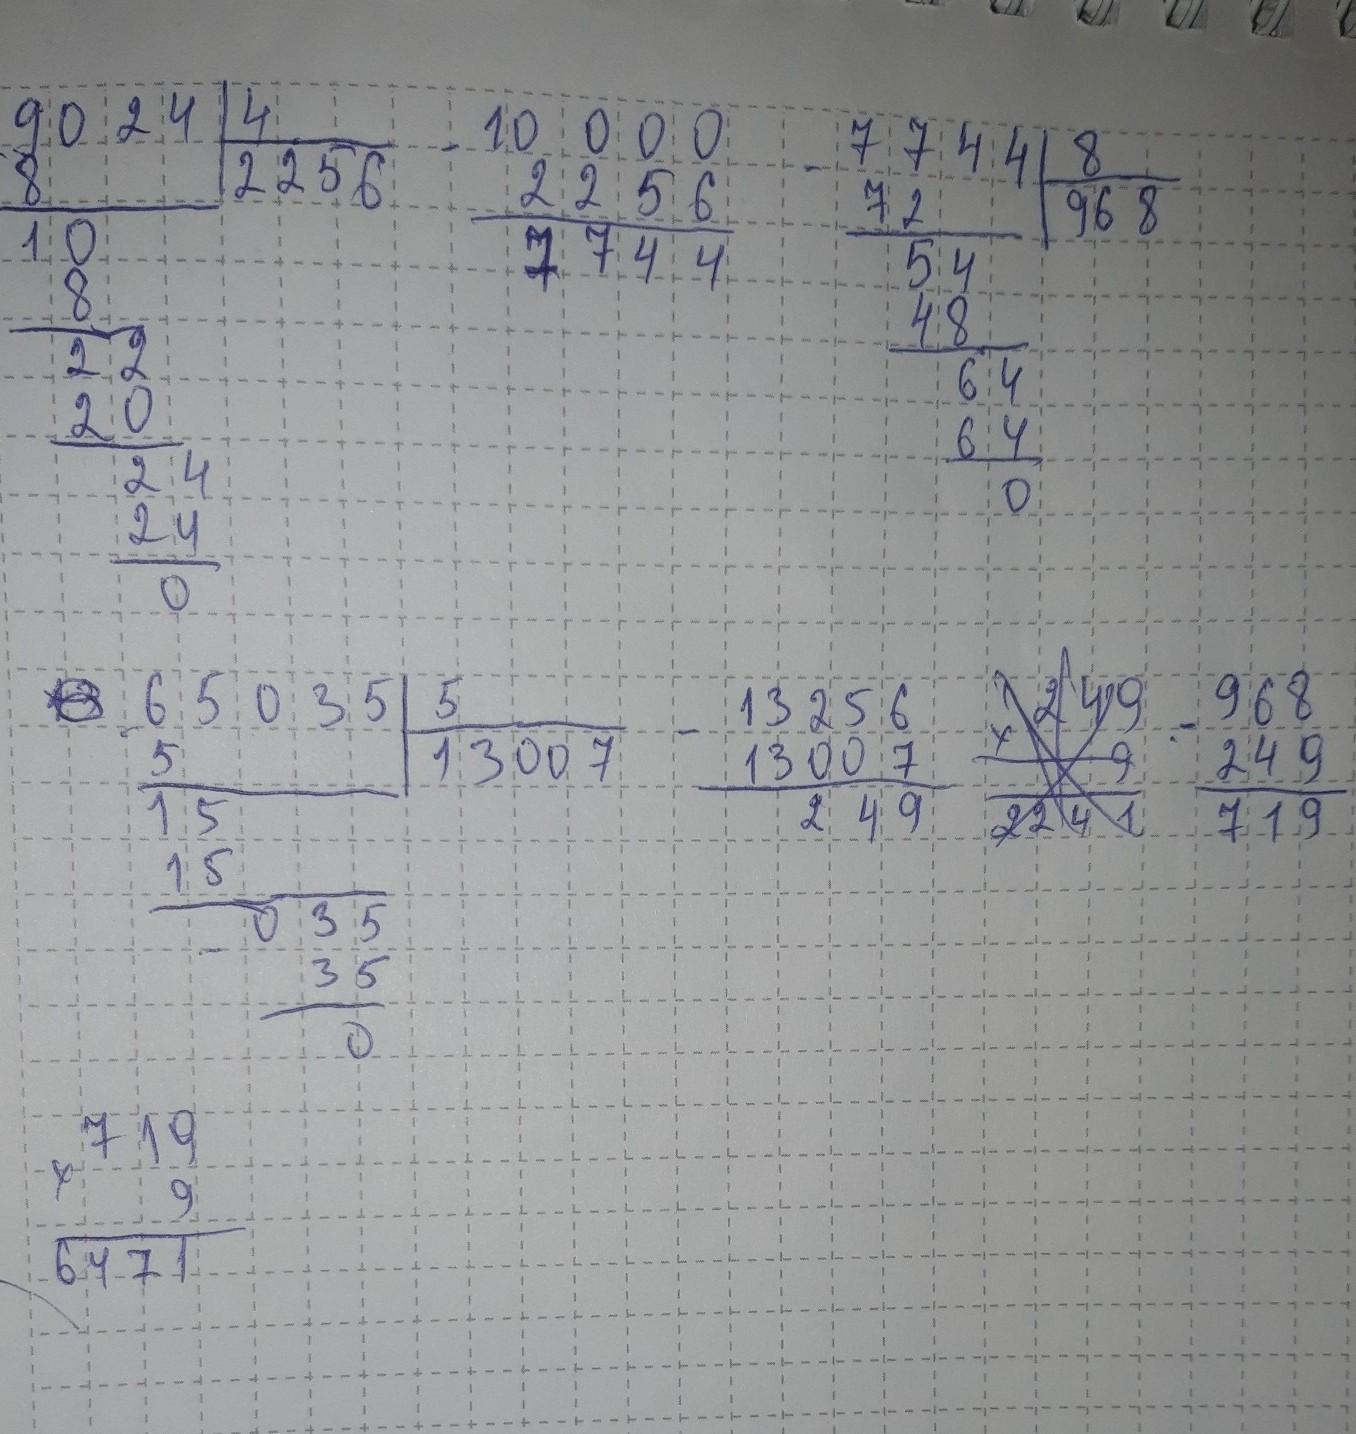 9024 | 4
8 2256
10
8
22
20
24
24
0
- 10 000
2256
7744
- 7744 | 8
72 968
54
48
64
64
0
- 65035 | 5
5 13007
15
15
- 035
35
0
- 13256
13007
249
x 249
9
2241
- 968
249
719
x 719
9
6471